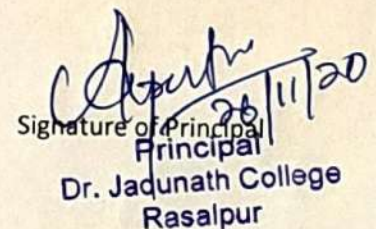 26/11/20
Signature of Principal
Principal
Dr. Jadunath College
Rasalpur